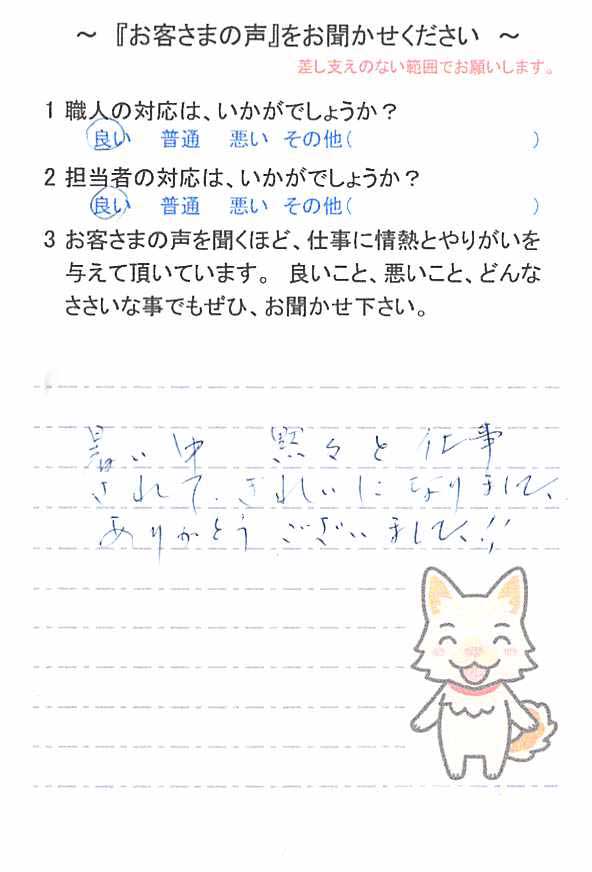 ～ 『お客さまの声』をお聞かせください ～
差し支えのない範囲でお願いします。
1 職人の対応は、いかがでしょうか？
良い 普通 悪い その他( )
2 担当者の対応は、いかがでしょうか？
良い 普通 悪い その他( )
3 お客さまの声を聞くほど、仕事に情熱とやりがいを
与えて頂いています。 良いこと、悪いこと、どんな
ささいな事でもぜひ、お聞かせ下さい。
暑い中 黙々と仕事
されて、きれいになりまして、
ありがとうございました!!